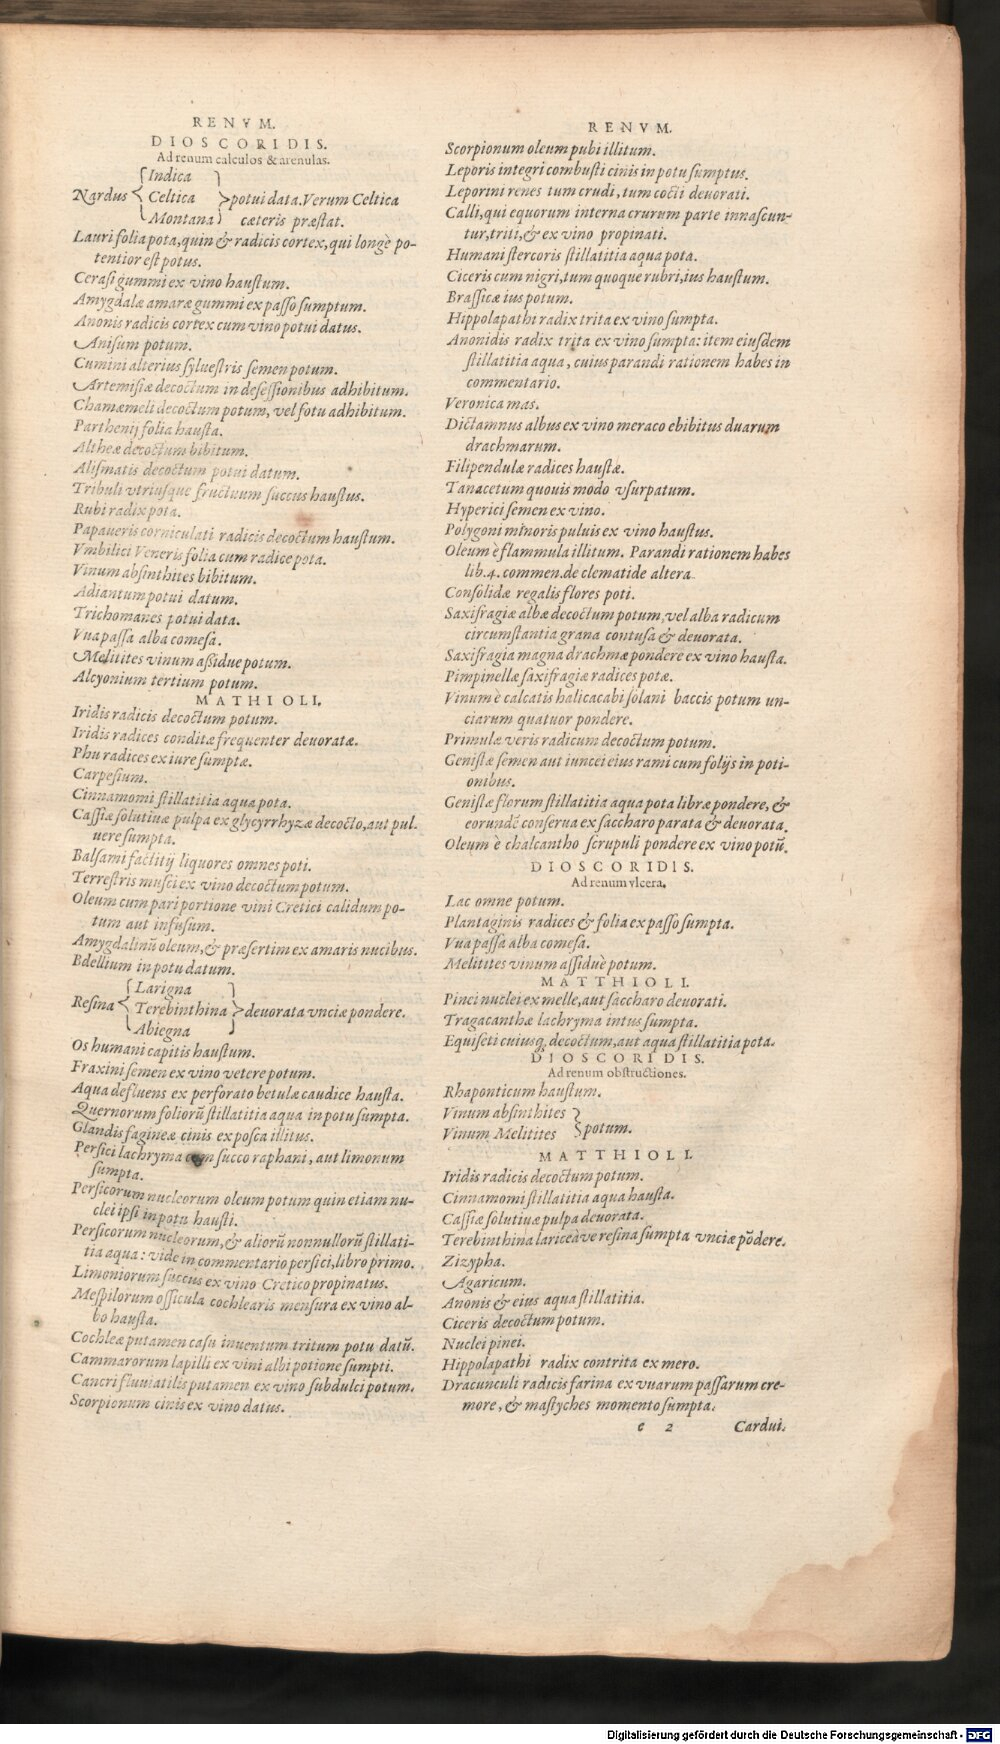 RENVM.
DIOSCORIDIS.
Ad renum calculos & arenulas.
Nardus { Indica
Celtica
Montana } potui data. Verum Celtica
cæteris præstat.
Lauri folia pota, quin & radicis cortex, qui longè po-
tentior est potus.
Cerasi gummi ex vino haustum.
Amygdalæ amaræ gummi ex passo sumptum.
Anonis radicis cortex cum vino potui datus.
Anisum potum.
Cumini alterius syluestris semen potum.
Artemisiæ decoctum in desessionibus adhibitum.
Chamæmeli decoctum potum, vel fotu adhibitum.
Parthenij folia hausta.
Altheæ decoctum bibitum.
Alismatis decoctum potui datum.
Tribuli vtriusque fructuum succus haustus.
Rubi radix pota.
Papaueris corniculati radicis decoctum haustum.
Vmbilici Veneris folia cum radice pota.
Vinum absinthites bibitum.
Adiantum potui datum.
Trichomanes potui data.
Vua passa alba comesa.
Melitites vinum assidue potum.
Alcyonium tertium potum.
MATHIOLI.
Iridis radicis decoctum potum.
Iridis radices conditæ frequenter deuoratæ.
Phu radices ex iure sumptæ.
Carpesium.
Cinnamomi stillatitia aqua pota.
Cassiæ solutiuæ pulpa ex glycyrrhyzæ decocto, aut pul-
uere sumpta.
Balsami factitij liquores omnes poti.
Terrestris musci ex vino decoctum potum.
Oleum cum pari portione vini Cretici calidum po-
tum aut infusum.
Amygdalinũ oleum, & præsertim ex amaris nucibus.
Bdellium in potu datum.
Resina { Larigna
Terebinthina
Abiegna } deuorata vnciæ pondere.
Os humani capitis haustum.
Fraxini semen ex vino vetere potum.
Aqua defluens ex perforato betulæ caudice hausta.
Quernorum foliorũ stillatitia aqua in potu sumpta.
Glandis fagineæ cinis ex posca illitus.
Persici lachryma cum succo raphani, aut limonum
sumpta.
Persicorum nucleorum oleum potum quin etiam nu-
clei ipsi in potu hausti.
Persicorum nucleorum, & aliorũ nonnullorũ stillati-
tia aqua: vide in commentario persici, libro primo.
Limoniorum succus ex vino Cretico propinatus.
Mespilorum ossicula cochlearis mensura ex vino al-
bo hausta.
Cochleæ putamen casu inuentum tritum potu datũ.
Cammarorum lapilli ex vini albi potione sumpti.
Cancri fluuiatilis putamen ex vino subdulci potum.
Scorpionum cinis ex vino datus.
RENVM.
Scorpionum oleum pubi illitum.
Leporis integri combusti cinis in potu sumptus.
Leporini renes tum crudi, tum cocti deuorati.
Calli, qui equorum interna crurum parte innascun-
tur, triti, & ex vino propinati.
Humani stercoris stillatitia aqua pota.
Ciceris cum nigri, tum quoque rubri, ius haustum.
Brassicæ ius potum.
Hippolapathi radix trita ex vino sumpta.
Anonidis radix trita ex vino sumpta: item eiusdem
stillatitia aqua, cuius parandi rationem habes in
commentario.
Veronica mas.
Dictamnus albus ex vino meraco ebibitus duarum
drachmarum.
Filipendulæ radices haustæ.
Tanacetum quouis modo vsurpatum.
Hyperici semen ex vino.
Polygoni minoris puluis ex vino haustus.
Oleum è flammula illitum. Parandi rationem habes
lib. 4. commen. de clematide altera.
Consolidæ regalis flores poti.
Saxifragiæ albæ decoctum potum, vel alba radicum
circumstantia grana contusa & deuorata.
Saxifragia magna drachmæ pondere ex vino hausta.
Pimpinellæ saxifragiæ radices potæ.
Vinum è calcatis halicacabi solani baccis potum un-
ciarum quatuor pondere.
Primulæ veris radicum decoctum potum.
Genistæ semen aut iuncei eius rami cum folijs in poti-
onibus.
Genistæ florum stillatitia aqua pota libræ pondere, &
eorundẽ conserua ex saccharo parata & deuorata.
Oleum è chalcantho scrupuli pondere ex vino potũ.
DIOSCORIDIS.
Ad renum vlcera.
Lac omne potum.
Plantaginis radices & folia ex passo sumpta.
Vua passa alba comesa.
Melitites vinum assiduè potum.
MATTHIOLI.
Pinei nuclei ex melle, aut saccharo deuorati.
Tragacanthæ lachryma intus sumpta.
Equiseti cuiusq; decoctum, aut aqua stillatitia pota.
DIOSCORIDIS.
Ad renum obstructiones.
Rhaponticum haustum.
Vinum absinthites
Vinum Melitites } potum.
MATTHIOLI.
Iridis radicis decoctum potum.
Cinnamomi stillatitia aqua hausta.
Cassiæ solutiuæ pulpa deuorata.
Terebinthina lariceave resina sumpta vnciæ põdere.
Zizypha.
Agaricum.
Anonis & eius aqua stillatitia.
Ciceris decoctum potum.
Nuclei pinei.
Hippolapathi radix contrita ex mero.
Dracunculi radicis farina ex vuarum passarum cre-
more, & mastyches momento sumpta.
c 2 Cardui.
Digitalisierung gefördert durch die Deutsche Forschungsgemeinschaft - DFG